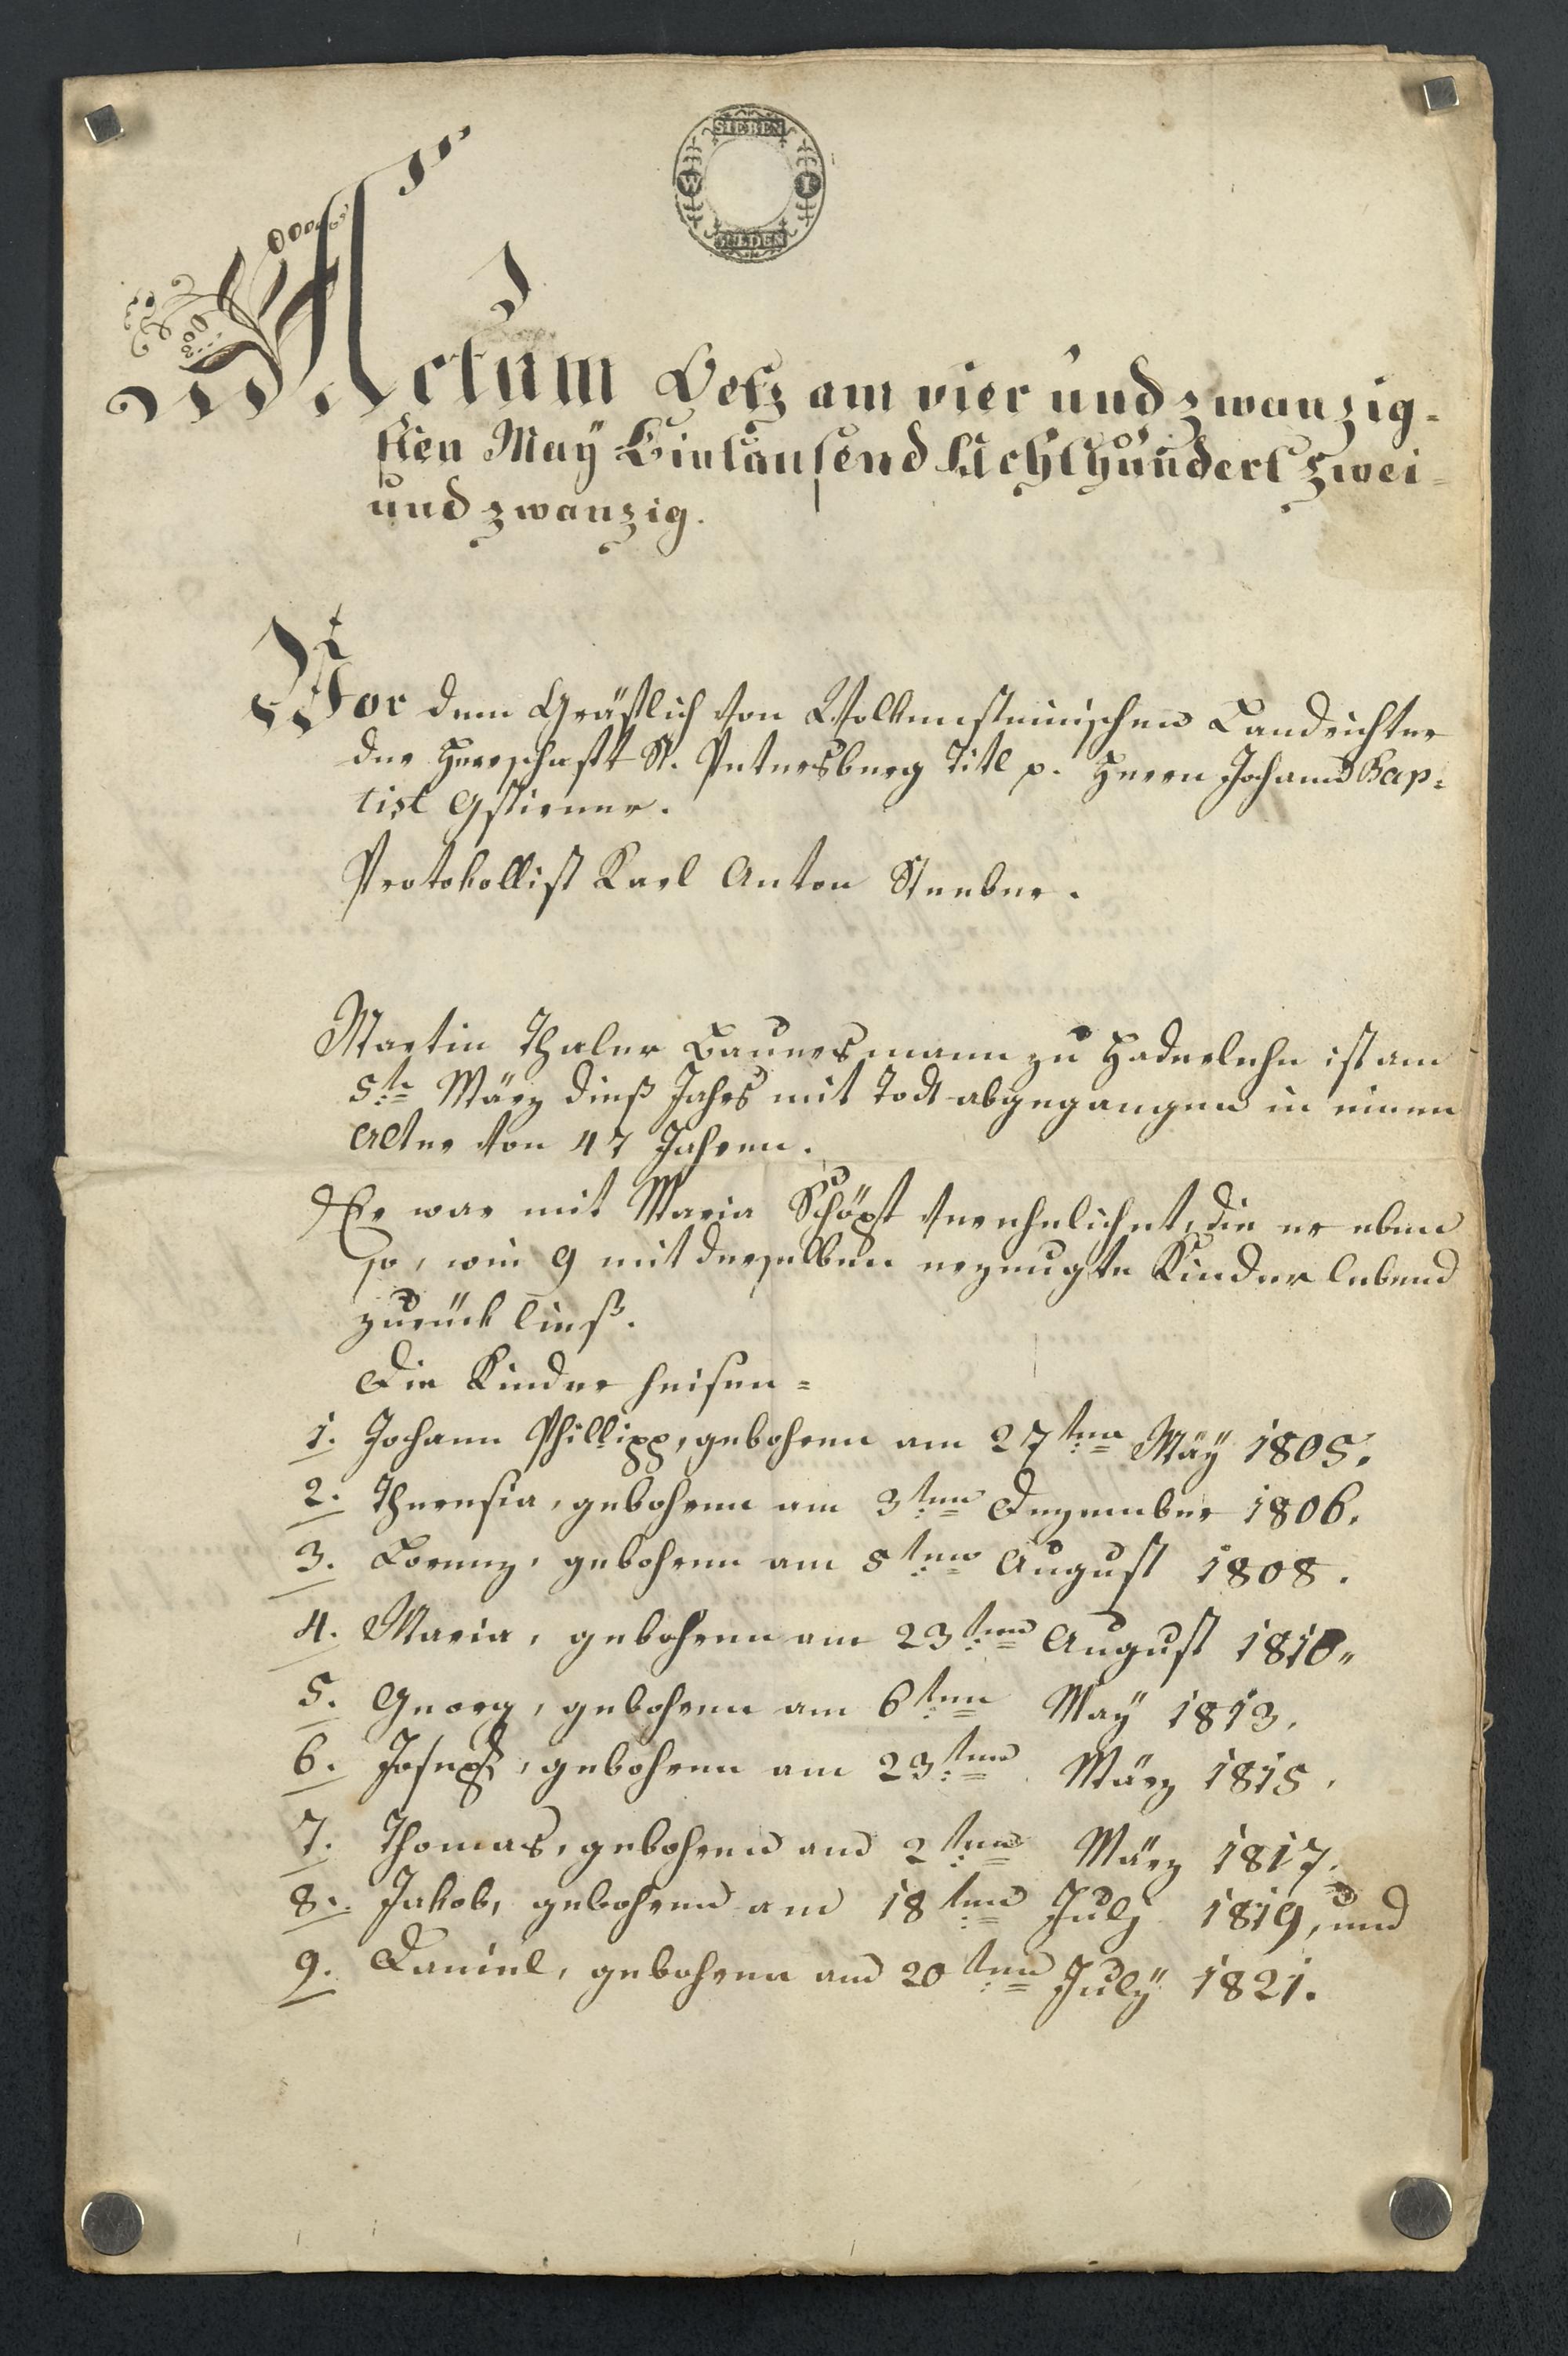 SIEBEN
W I
GULDEN
Actum Oetz am vier und zwanzig=
sten May Eintausend Achthundert zwei=
und zwanzig.
Vor dem Gräflich von Wolkensteinischen Landrichter
der Herrschaft St. Petersburg Titl p. Herrn Johann Bap=
tist Gstirner.
Protokollist Karl Anton Steeber.
Martin Thaler Bauersmann zu Haderlehn ist am
5te März dieß Jahrs mit Todt abgegangen in einem
Alter von 47 Jahren.
Er war mit Maria Schöpf verehelichet, die er eben
so, wie 9 mit derselben erzeugte Kinder lebend
zurück ließ.
Die Kinder heisen=
1. Johann Phillipp, gebohren am 27ten Mäÿ 1805.
2. Theresia, gebohren am 3ten Dezember 1806.
3. Lorenz, gebohren am 5ten August 1808.
4. Maria, gebohren am 23ten August 1810.
5. Georg, gebohren am 6ten Maÿ 1813.
6. Joseph, gebohren am 23ten März 1815.
7. Thomas, gebohren am 2ten März 1817.
8. Jakob, gebohren am 18ten Julj 1819, und
9. Daniel, gebohren am 20ten Julÿ 1821.